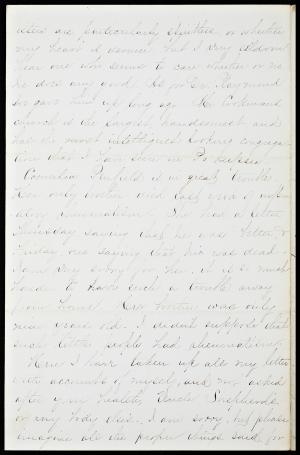 isters are particularly spirited, or whether
my heart is ; but I very seldom
hear one who seems to care whether or no
he does any good. As for Dr. Raymond
we gave him up long ago. Mr.
church is the largest, handsomest and
has the most intelligent looking congrega-
tion that I have seen in Po'keepsie.
Cornelia Penfield is in great trouble.
Her only brother died last week of
pneumonia. She had a letter
Thursday saying that he was better &
Friday one saying that he was dead.
I am very sorry for her. It is so much
harder to have such a trouble away
from home. Her brother was only
nine years old. I didn't suppose that
such little people had pneumonia.
Here I have taken up all my letter
with accounts of myself, and not asked
after your health, Uncle Shepherd's
or any body else's. I am sorry, but please
imagine all the proper things said, for